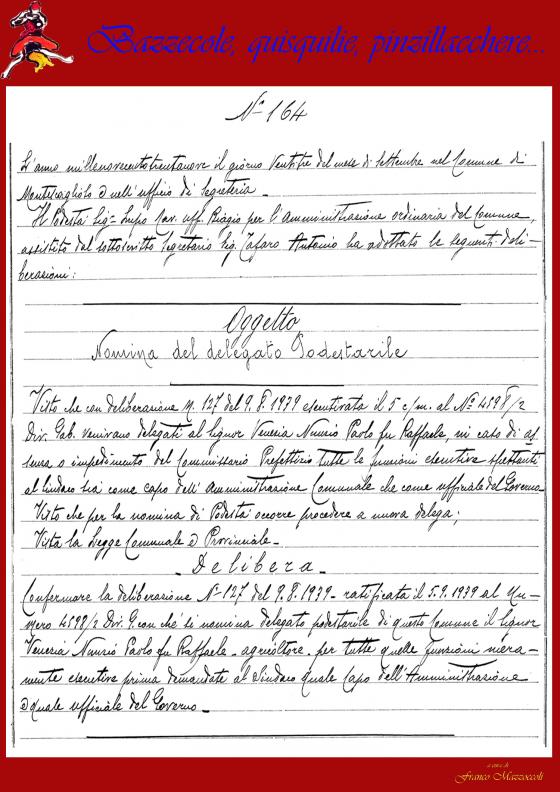 Bazzecole, quisquilie, pinzillacchere...
N° 164
L'anno millenovecentotrentanove il giorno Ventitre del mese di Settembre nel Comune di
Montescaglioso e nell'ufficio di Segreteria -
Il Podestà Sig. Lupo Cav. uff. Biagio per l'amministrazione ordinaria del Comune,
assistito dal sottoscritto Segretario Sig. Tafaro Antonio ha adottato le seguenti deli-
berazioni:
Oggetto
Nomina del delegato Podestarile
Visto che con deliberazione N. 127 del 9.8.1939 esecutivata il 5 c/m. al N° 4598/2
Div. Gab. venivano delegati al signor Venezia Nunzio Paolo fu Raffaele, in caso di as
senza o impedimento del Commissario Prefettizio tutte le funzioni esecutive spettanti
al Sindaco sia come capo dell'Amministrazione Comunale che come ufficiale del Governo
Visto che per la nomina di Podestà occorre procedere a nuova delega;
Vista la Legge Comunale e Provinciale -
- Delibera -
Confermare la deliberazione N° 127 del 9.8.1939 - ratificata il 5.9.1939 al Nu-
mero 4598/2 Div. G. con che si nomina delegato podestarile di questo Comune il signor
Venezia Nunzio Paolo fu Raffaele - agricoltore - per tutte quelle funzioni mera-
mente esecutive prima demandate al Sindaco quale Capo dell'Amministrazione
e quale ufficiale del Governo -
a cura di
Franco Mazzoccoli